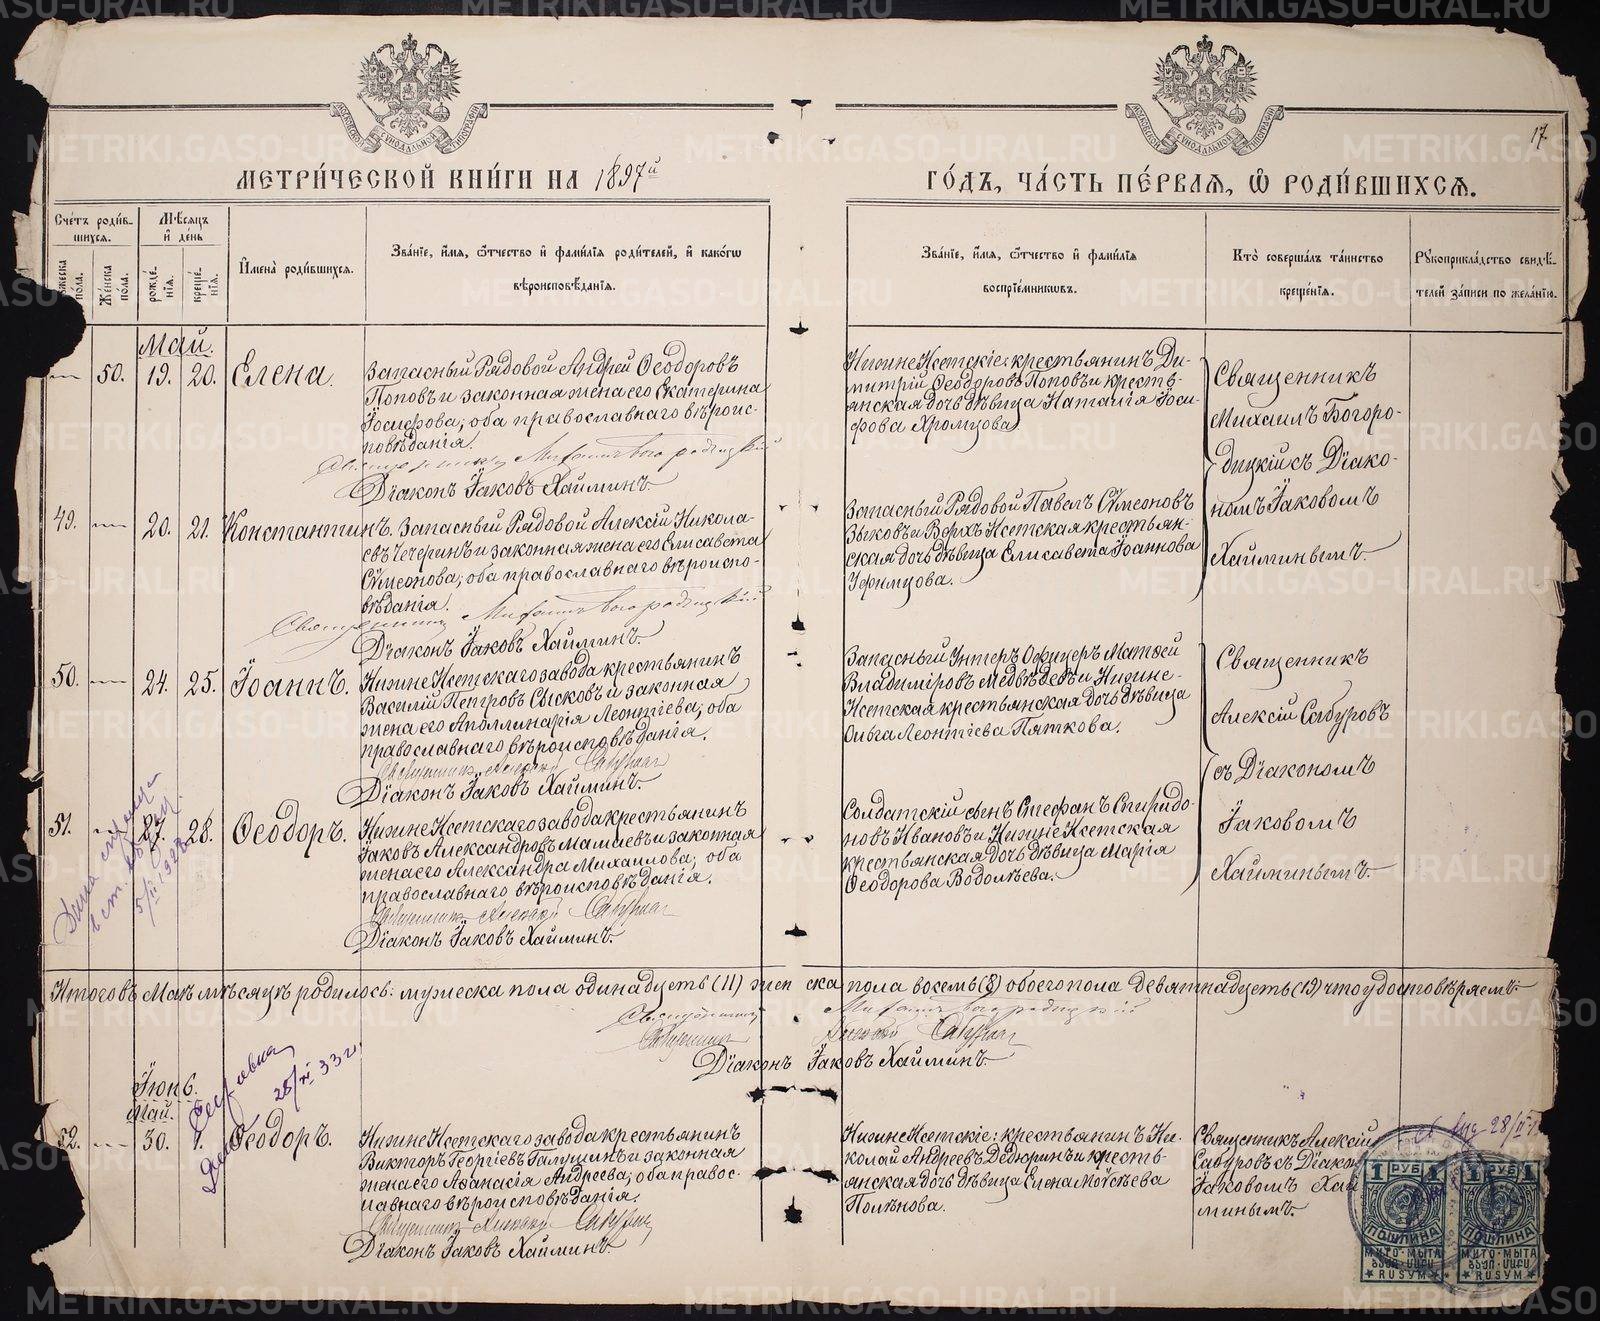 МЕТРИ́ЧЕСКОЙ КНИ́ГИ НА 1897й
ГО́ДЪ, ЧА́СТЬ ПЕ́РВАЯ, Ѽ РОДИ́ВШИХСЯ.
17.
Сче́тъ роди́в-
шихся.
Мѣ́сяцъ
и҆ де́нь
И҆мена̀ роди́вшихся.
Зва́нїе, и҆́мя, ѻ҆́тчество и҆ фами́лїя роди́телей, и҆ како́гѡ
вѣроисповѣ́данїя.
Зва́нїе, и҆́мя, ѻ҆́тчество и҆ фами́лїя
воспрїе́мникѡвъ.
Кто̀ соверша́лъ та́инство
креще́нїя.
Рꙋкоприкла́дство свидѣ́-
телей за́писи по жела́нїю.
Же́нска
по́ла.
рожде́-
нїя.
креще́-
нїя.
Май.
50. 19. 20. Елена.
Запасный Рядовой Андрей Ѳеодоровъ
Поповъ и законная жена его Екатерина
Іосифова, оба православнаго вѣроис-
повѣданія.
Священникъ Михаилъ Богородицкій
Діаконъ Іаковъ Хайминъ.
Нижне Исетскіе: крестьянинъ Ди-
митрій Ѳеодоровъ Поповъ и кресть-
янская дочь дѣвица Наталія Іоси-
фова Хромцова.
Священникъ
Михаилъ Богоро-
дицкій съ Діако-
номъ Іаковомъ
Хайминымъ.
49. 20. 21. Константинъ.
Запасный Рядовой Алексій Никола-
евъ Чечеринъ и законная жена его Елисавета
Сѵмеонова, оба православнаго вѣроиспо-
вѣданія.
Священникъ Михаилъ Богородицкій
Діаконъ Іаковъ Хайминъ.
Запасный Рядовой Павелъ Сѵмеоновъ
Зыковъ и Верхъ Исетская крестьян-
ская дочь дѣвица Елисавета Іоаннова
Уфимцова.
50. 24. 25. Іоаннъ.
Нижне Исетскаго завода крестьянинъ
Василій Петровъ Сысковъ и законная
жена его Аполлинарія Леонтіева, оба
православнаго вѣроисповѣданія.
Священникъ Алексій Сабуровъ
Діаконъ Іаковъ Хайминъ.
Запасный Унтеръ Офицеръ Матѳей
Владиміровъ Медвѣдевъ и Нижне-
Исетская крестьянская дочь дѣвица
Ольга Леонтіева Пяткова.
Священникъ
Алексій Сабуровъ
съ Діакономъ
Іаковомъ
Хайминымъ.
51. 27. 28. Ѳеодоръ.
Нижне Исетскаго завода крестьянинъ
Іаковъ Александровъ Мамаевъ и законная
жена его Александра Михаилова, оба
православнаго вѣроисповѣданія.
Священникъ Алексій Сабуровъ
Діаконъ Іаковъ Хайминъ.
Солдатскій сынъ Стефанъ Спиридо-
новъ Ивановъ и Нижне Исетская
крестьянская дочь дѣвица Марія
Ѳеодорова Водолѣева.
Итого въ Маѣ мѣсяцѣ родилось: мужеска пола одинадцать (11) женска пола восемь (8) обоего пола девятнадцать (19) что удостовѣряемъ:
Священникъ Михаилъ Богородицкій
Священникъ Алексій Сабуровъ
Діаконъ Іаковъ Хайминъ.
Іюнь.
Май.
28/XI 33 г.
52. 30. 1. Ѳеодоръ.
Нижне Исетскаго завода крестьянинъ
Викторъ Георгіевъ Галушинъ и законная
жена его Аѳанасія Андреева, оба правос-
лавнаго вѣроисповѣданія.
Священникъ Алексій Сабуровъ
Діаконъ Іаковъ Хайминъ.
Нижне Исетскіе: крестьянинъ Ни-
колай Андреевъ Дедюринъ и кресть-
янская дочь дѣвица Елена Моѵсѣева
Полѣнова.
Священникъ Алексій
Сабуровъ съ Діакон
Іаковомъ Хай
минымъ.
1 РУБ 1
ПОШЛИНА
МИТО · МЫТА
RUSUM
1 РУБ 1
ПОШЛИНА
МИТО · МЫТА
RUSUM
METRIKI.GASO-URAL.RU